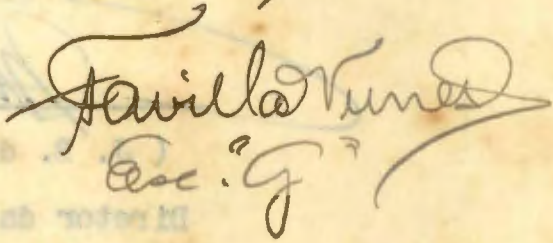 Favilla Nunes
Esc. "G"